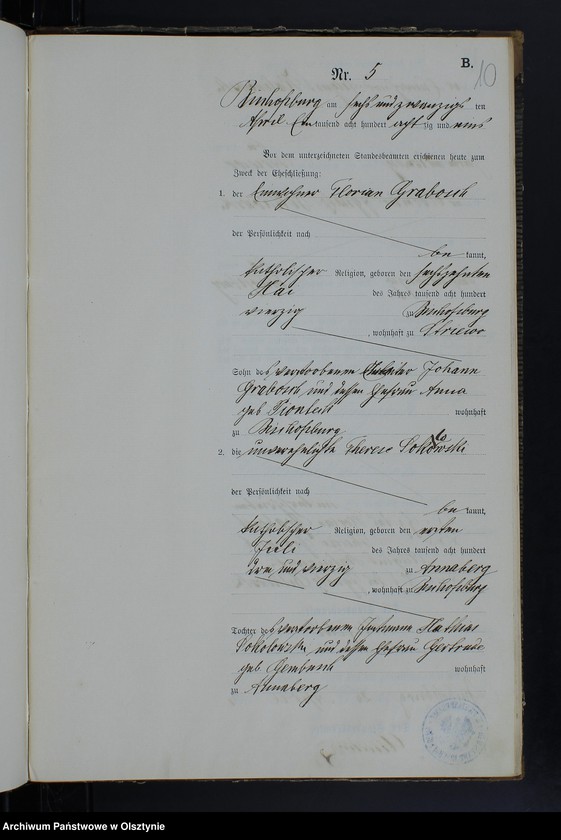 B.
10
Nr. 5
Bischofsburg am sechs und zwanzigs ten
April Ein tausend acht hundert acht zig und eins
Vor dem unterzeichneten Standesbeamten erschienen heute zum
Zweck der Eheschließung:
1. der Florian Grabosch
der Persönlichkeit nach
be kannt,
katholischer Religion, geboren den sechszehnten
Mai des Jahres tausend acht hundert
vierzig zu Bischofsburg
, wohnhaft zu
Sohn des verstorbenen Johann
Grabosch und dessen Ehefrau Anna
geb Piontech wohnhaft
zu Bischofsburg
2. die unverehelichte Therese Sokolowski
der Persönlichkeit nach
be kannt,
katholischer Religion, geboren den ersten
Juli des Jahres tausend acht hundert
drei und vierzig zu Annaberg
, wohnhaft zu Bischofsburg
Tochter des verstorbenen Mathias
Sokolowski und dessen Ehefrau Gertrude
geb. wohnhaft
zu Annaberg
Archiwum Państwowe w Olsztynie